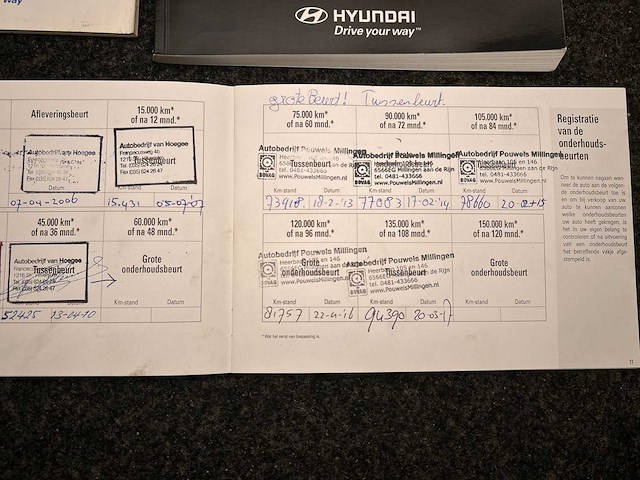 way
HYUNDAI
Drive your way™
Afleveringsbeurt
15.000 km*
of na 12 mnd.*
Autobedrijf van Hoegee
Tussenbeurt
Datum
Km-stand
Datum
07-04-2006
15.431
45.000 km*
of na 36 mnd.*
60.000 km*
of na 48 mnd.*
Autobedrijf van Hoegee
Tussenbeurt
Grote
onderhoudsbeurt
Km-stand
Datum
52425
13-04-10
grote Beurt! Tussenbeurt.
75.000 km*
of na 60 mnd.*
90.000 km*
of na 72 mnd.*
105.000 km*
of na 84 mnd.*
Autobedrijf Pouwels Millingen
Tussenbeurt
tel. 0481-433666
www.PouwelsMillingen.nl
BOVAG
Autobedrijf Pouwels Millingen
6566EG Millingen aan de Rijn
tel. 0481-433666
www.PouwelsMillingen.nl
BOVAG
Autobedrijf Pouwels Millingen
Tussenbeurt
6566EG Millingen aan de Rijn
tel. 0481-433666
www.PouwelsMillingen.nl
BOVAG
Km-stand
Datum
Km-stand
Datum
Km-stand
Datum
73918
18-2-'13
77083
17-02-'14
78660
20-02-15
120.000 km*
of na 96 mnd.*
135.000 km*
of na 108 mnd.*
150.000 km*
of na 120 mnd.*
Autobedrijf Pouwels Millingen
Grote
onderhoudsbeurt
www.PouwelsMillingen.nl
Autobedrijf Pouwels Millingen
Tussenbeurt
6566EG Millingen aan de Rijn
tel. 0481-433666
www.PouwelsMillingen.nl
Grote
onderhoudsbeurt
Km-stand
Datum
Km-stand
Datum
Km-stand
Datum
81757
22-4-'16
94390
20-03-17
* Wat het eerst van toepassing is.
Registratie
van de
onderhouds-
beurten
Om te kunnen nagaan wanneer
de auto aan de volgen-
de onderhoudsbeurt toe is
en om bij verkoop van uw
auto te kunnen aantonen
welke onderhoudsbeurten
uw auto heeft gekregen, is
het in uw eigen belang te
controleren of na uitvoering
van een onderhoudsbeurt
het betreffende vakje afge-
stempeld is.
11